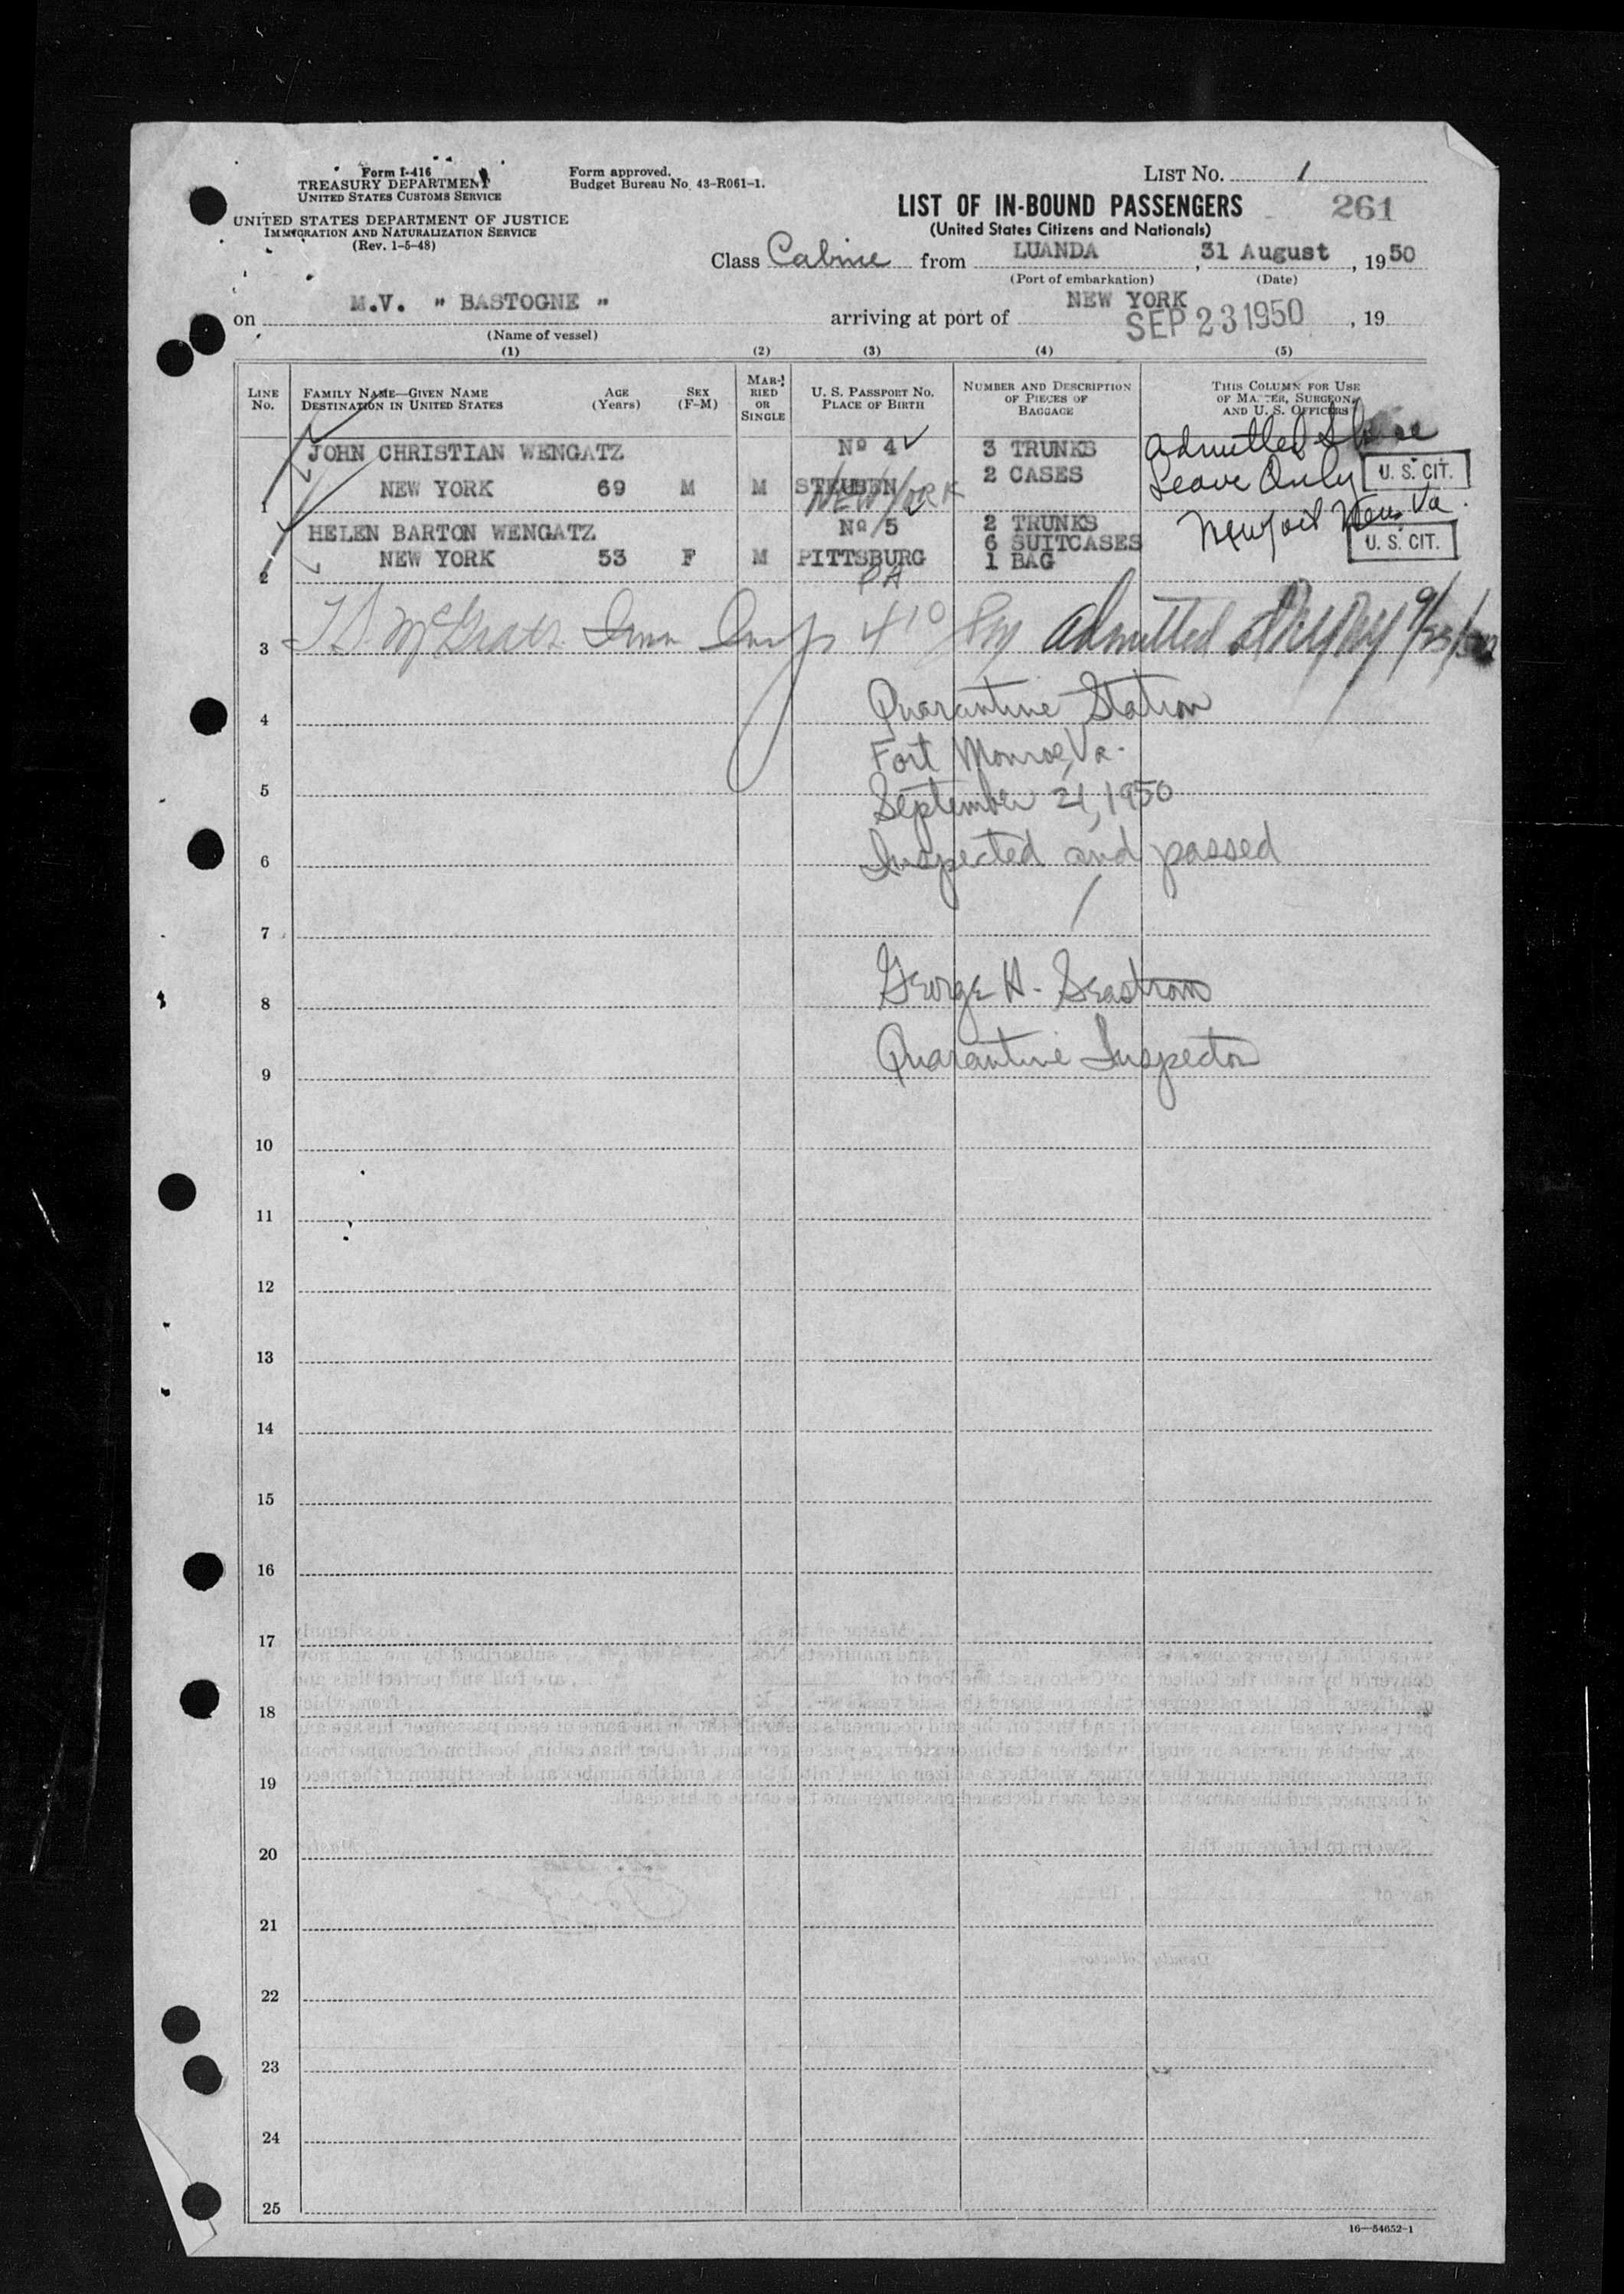 Form I-416
TREASURY DEPARTMENT
UNITED STATES CUSTOMS SERVICE
UNITED STATES DEPARTMENT OF JUSTICE
IMMIGRATION AND NATURALIZATION SERVICE
(Rev. 1-5-48)
Form approved.
Budget Bureau No. 43-R061-1.
LIST No. 1
LIST OF IN-BOUND PASSENGERS 261
(United States Citizens and Nationals)
Class Cabine from LUANDA, 31 August, 1950
(Port of embarkation) (Date)
on M.V. " BASTOGNE " arriving at port of NEW YORK SEP 23 1950, 19
(Name of vessel)
(1) (2) (3) (4) (5)
LINE No.
FAMILY NAME—GIVEN NAME
DESTINATION IN UNITED STATES
AGE (Years)
SEX (F-M)
MARRIED OR SINGLE
U. S. PASSPORT No.
PLACE OF BIRTH
NUMBER AND DESCRIPTION OF PIECES OF BAGGAGE
THIS COLUMN FOR USE OF MASTER, SURGEON, AND U. S. OFFICERS
JOHN CHRISTIAN WENGATZ Nº 4 3 TRUNKS Admitted Shore
1 NEW YORK 69 M M STEUBEN NEW YORK 2 CASES Leave Only U. S. CIT.
Newport News Va.
HELEN BARTON WENGATZ Nº 5 2 TRUNKS
6 SUITCASES U. S. CIT.
2 NEW YORK 53 F M PITTSBURG PA 1 BAG
3 Admitted 9/23/50
4 Quarantine Station
Fort Monroe, Va.
5 September 21, 1950
6 Inspected and passed
7
8 George H. Seastrom
9 Quarantine Inspector
10
11
12
13
14
15
16
17
18
19
20
21
22
23
24
25
16—54652-1